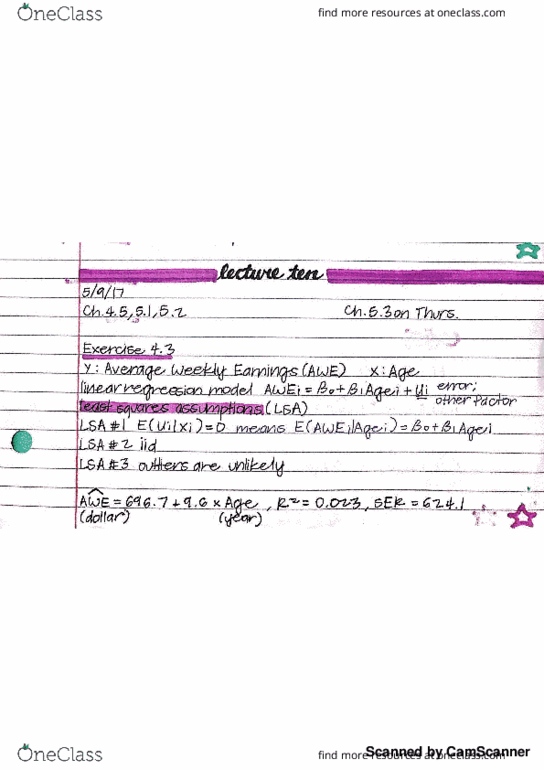 OneClass find more resources at oneclass.com
lecture ten
5/9/17
Ch.4.5, 5.1, 5.2 Ch.5.3 on Thurs.
Exercise 4.3
Y: Average Weekly Earnings (AWE) X: Age
linear regression model AWEi = β0 + β1 Agei + ui error;
other factor
least squares assumptions (LSA)
LSA #1 E(ui|Xi)=0 means E(AWEi|Agei) = β0 + β1 Agei
LSA #2 iid
LSA #3 outliers are unlikely
AWE^ = 696.7 + 9.6 x Age, R² = 0.023, SER = 624.1
(dollar) (year)
OneClass find more resources at oneclass.com
Scanned by CamScanner